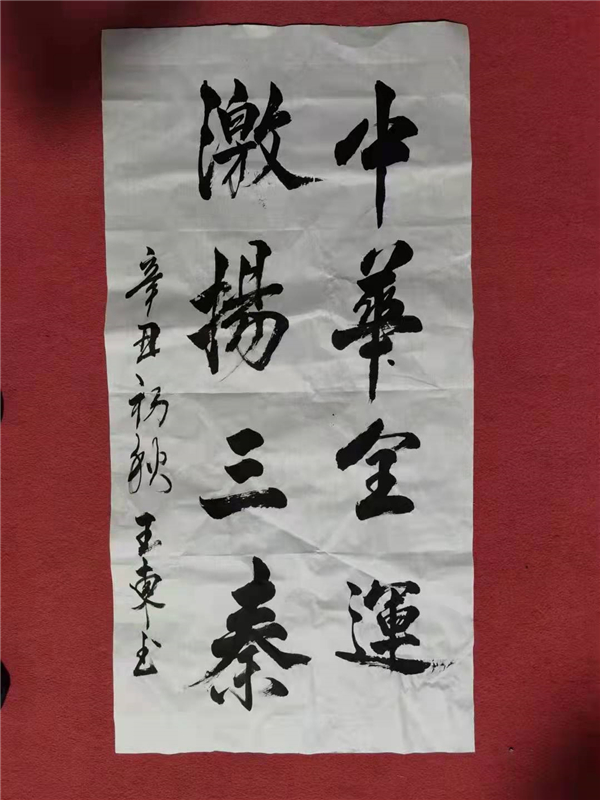 中華全運
激揚三秦
辛丑初秋 王東書